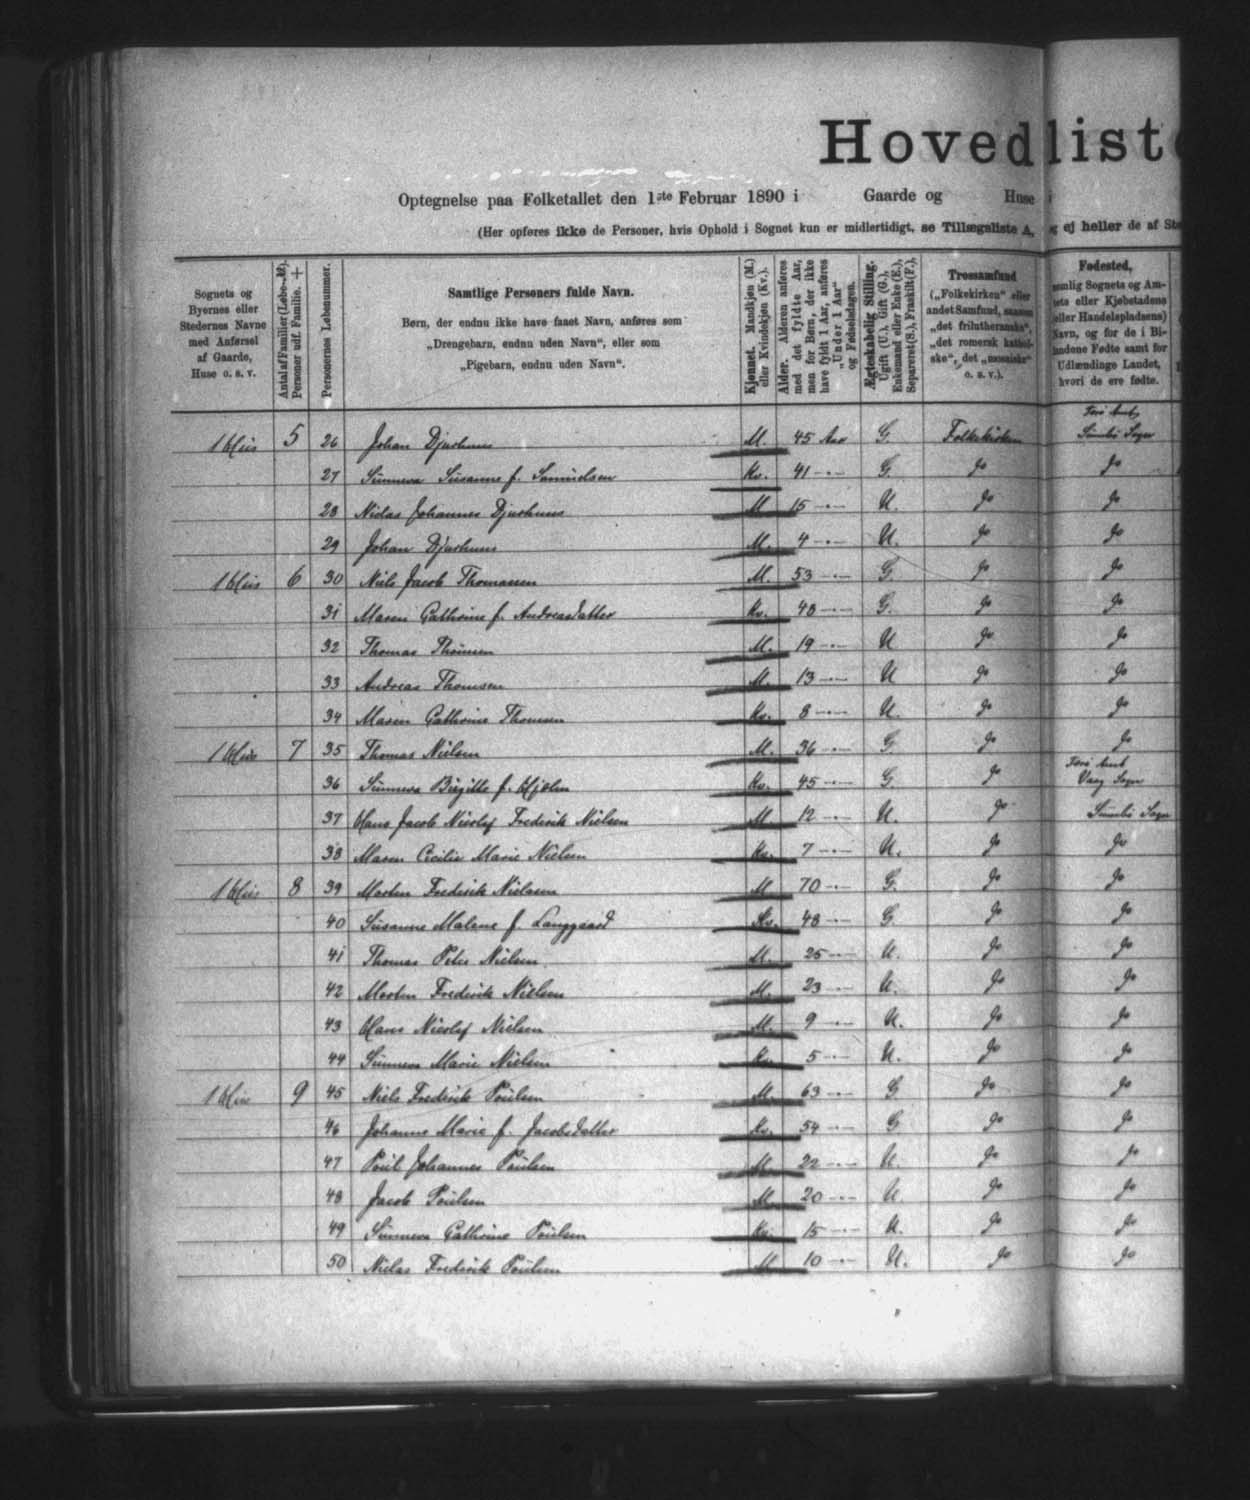 Hovedliste
Optegnelse paa Folketallet den 1ste Februar 1890 i Gaarde og Huse i
(Her opføres ikke de Personer, hvis Ophold i Sognet kun er midlertidigt, se Tillægsliste A, og ej heller de af
Sognets og Byernes eller Stedernes Navne med Anførsel af Gaarde, Huse o. s. v.
Antal af Familier (Løbe-№). Personer udf. Familie. +
Personernes Løbenummer.
Samtlige Personers fulde Navn.
Børn, der endnu ikke have faaet Navn, anføres som
„Drengebarn, endnu uden Navn“, eller som
„Pigebarn, endnu uden Navn“.
Kjønnet. Mandkjøn (M.) eller Kvindekjøn (Kv.).
Alder. Alderen anføres med det fyldte Aar, men for Børn, der ikke have fyldt 1 Aar, anføres „Under 1 Aar“ og Fødselsdagen.
Ægteskabelig Stilling. Ugift (U.), Gift (G.), Enkemand eller Enke (E.), Separeret (S.), Fraskilt (F.).
Trossamfund („Folkekirken“ eller andet Samfund, saasom „det frilutheranske“, „det romersk katholske“, det „mosaiske“ o. s. v.).
Fødested, nemlig Sognets og Amtets eller Kjøbstadens (eller Handelspladsens) Navn, og for de i Bilandene Fødte samt for Udlændinge Landet, hvori de ere fødte.
1 Hus 5 26 Johan Djurhuus M. 45 Aar G. Folkekirken Færø Amt, Sumbø Sogn
27 Sunneva Susanne f. Samuelsen Kv. 41 -"- G. Do Do
28 Niclas Johannes Djurhuus M 15 -"- U. Do Do
29 Johan Djurhuus M. 4 -"- U. Do Do
1 Hus 6 30 Niels Jacob Thomasen M. 53 -"- G. Do Do
31 Maren Cathrine f. Andreasdatter Kv. 48 -"- G. Do Do
32 Thomas Thomsen M. 19 -"- U Do Do
33 Andreas Thomsen M. 13 -"- U Do Do
34 Maren Cathrine Thomsen Kv. 8 -"- U. Do Do
1 Hus 7 35 Thomas Nielsen M. 36 -"- G. Do Do
36 Sunneva Birgitte f. Hjølm Kv. 45 -"- G. Do Færø Amt Vaag Sogn
37 Hans Jacob Nicolaj Frederik Nielsen M 12 -"- U. Do Sumbø Sogn
38 Maren Cecilie Marie Nielsen Kv. 7 -"- U. Do Do
1 Hus 8 39 Morten Frederik Nielsen M 70 -"- G. Do Do
40 Susanne Malene f. Langgaard Kv. 48 -"- G. Do Do
41 Thomas Peter Nielsen M. 25 -"- U. Do Do
42 Morten Frederik Nielsen M. 23 -"- U. Do Do
43 Hans Nicolaj Nielsen M. 9 -"- U. Do Do
44 Sunneva Marie Nielsen Kv. 5 -"- U. Do Do
1 Hus 9 45 Niels Frederik Poulsen M. 63 -"- G. Do Do
46 Johanne Marie f. Jacobsdatter Kv. 54 -"- G Do Do
47 Poul Johannes Poulsen M. 22 -"- U. Do Do
48 Jacob Poulsen M. 20 -"- U Do Do
49 Sunneva Cathrine Poulsen Kv. 15 -"- U. Do Do
50 Niclas Frederik Poulsen M 10 -"- U. Do Do